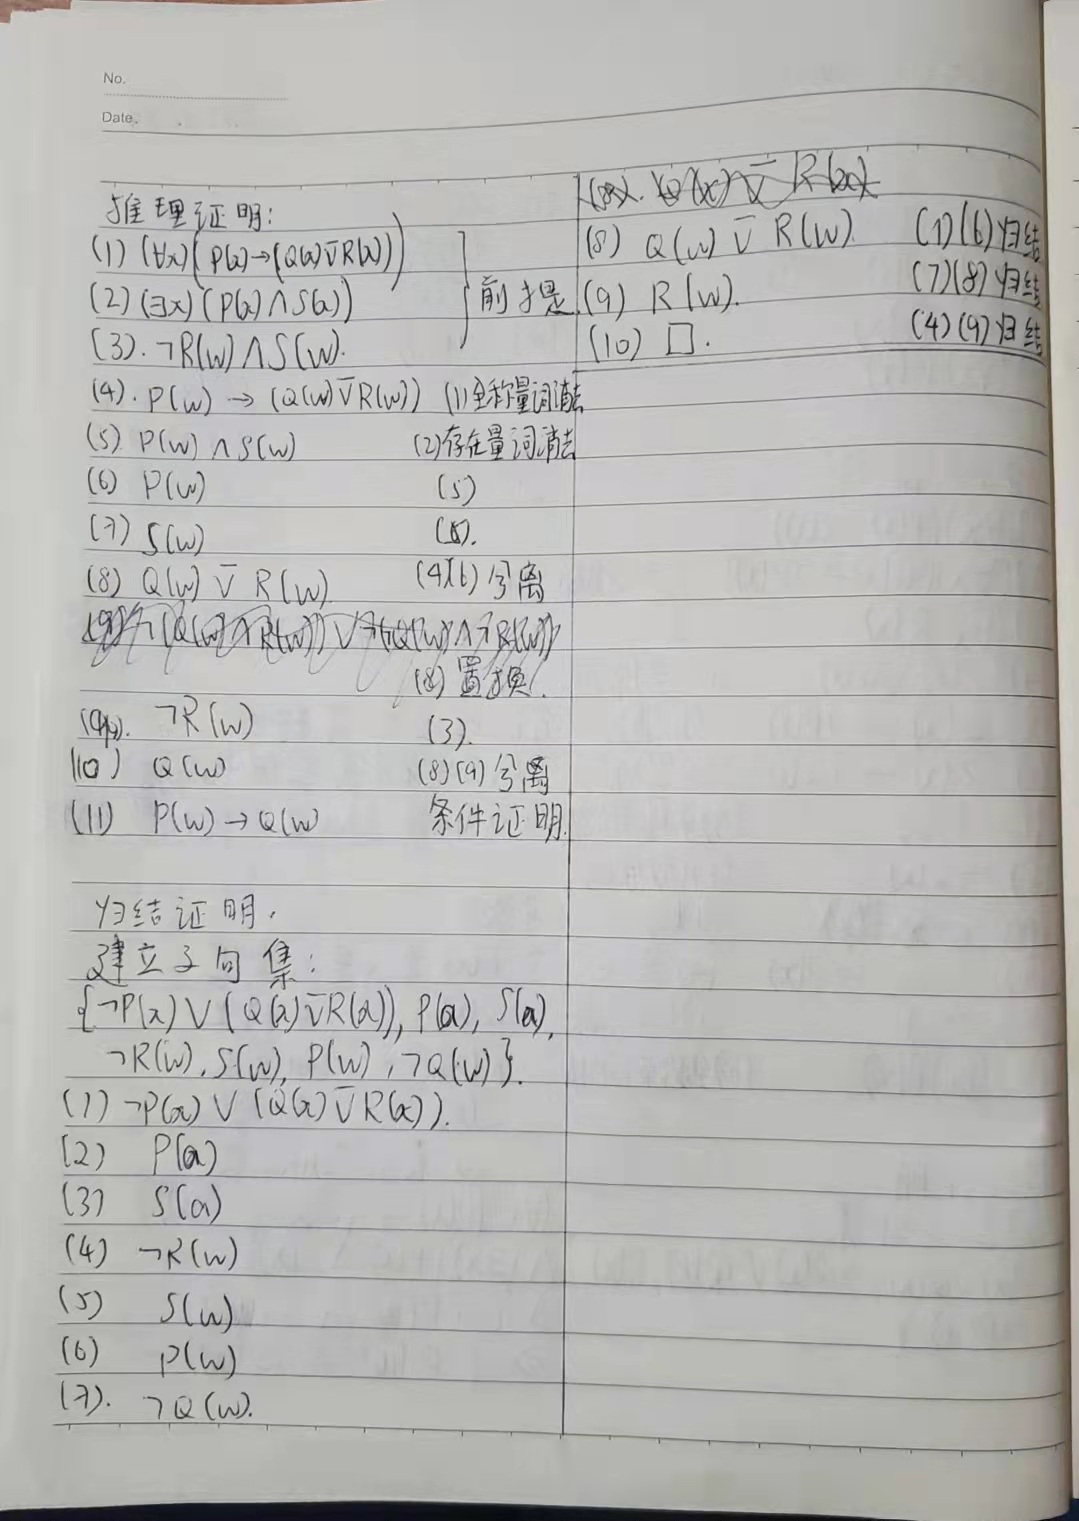 No.
Date.
推理证明:
(1) (∀x)(P(x)→(Q(x)⊽R(x)))
(2) (∃x)(P(x)∧S(x))
前提
(3). ¬R(w)∧S(w).
(4). P(w)→(Q(w)⊽R(w)) (1)全称量词消去
(5) P(w)∧S(w) (2)存在量词消去
(6) P(w) (5)
(7) S(w) (5).
(8) Q(w)⊽R(w) (4)(6)分离
(8)置换.
(9). ¬R(w) (3).
(10) Q(w) (8)(9)分离
(11) P(w)→Q(w) 条件证明.
归结证明.
建立子句集:
{¬P(x)∨(Q(x)⊽R(x)), P(a), S(a),
¬R(w), S(w), P(w), ¬Q(w)}.
(1) ¬P(x)∨(Q(x)⊽R(x)).
(2) P(a)
(3) S(a)
(4) ¬R(w)
(5) S(w)
(6) P(w)
(7). ¬Q(w).
(8). Q(x)⊽R(x).
(8) Q(w)⊽R(w). (1)(6)归结
(9) R(w). (7)(8)归结
(10) □. (4)(9)归结